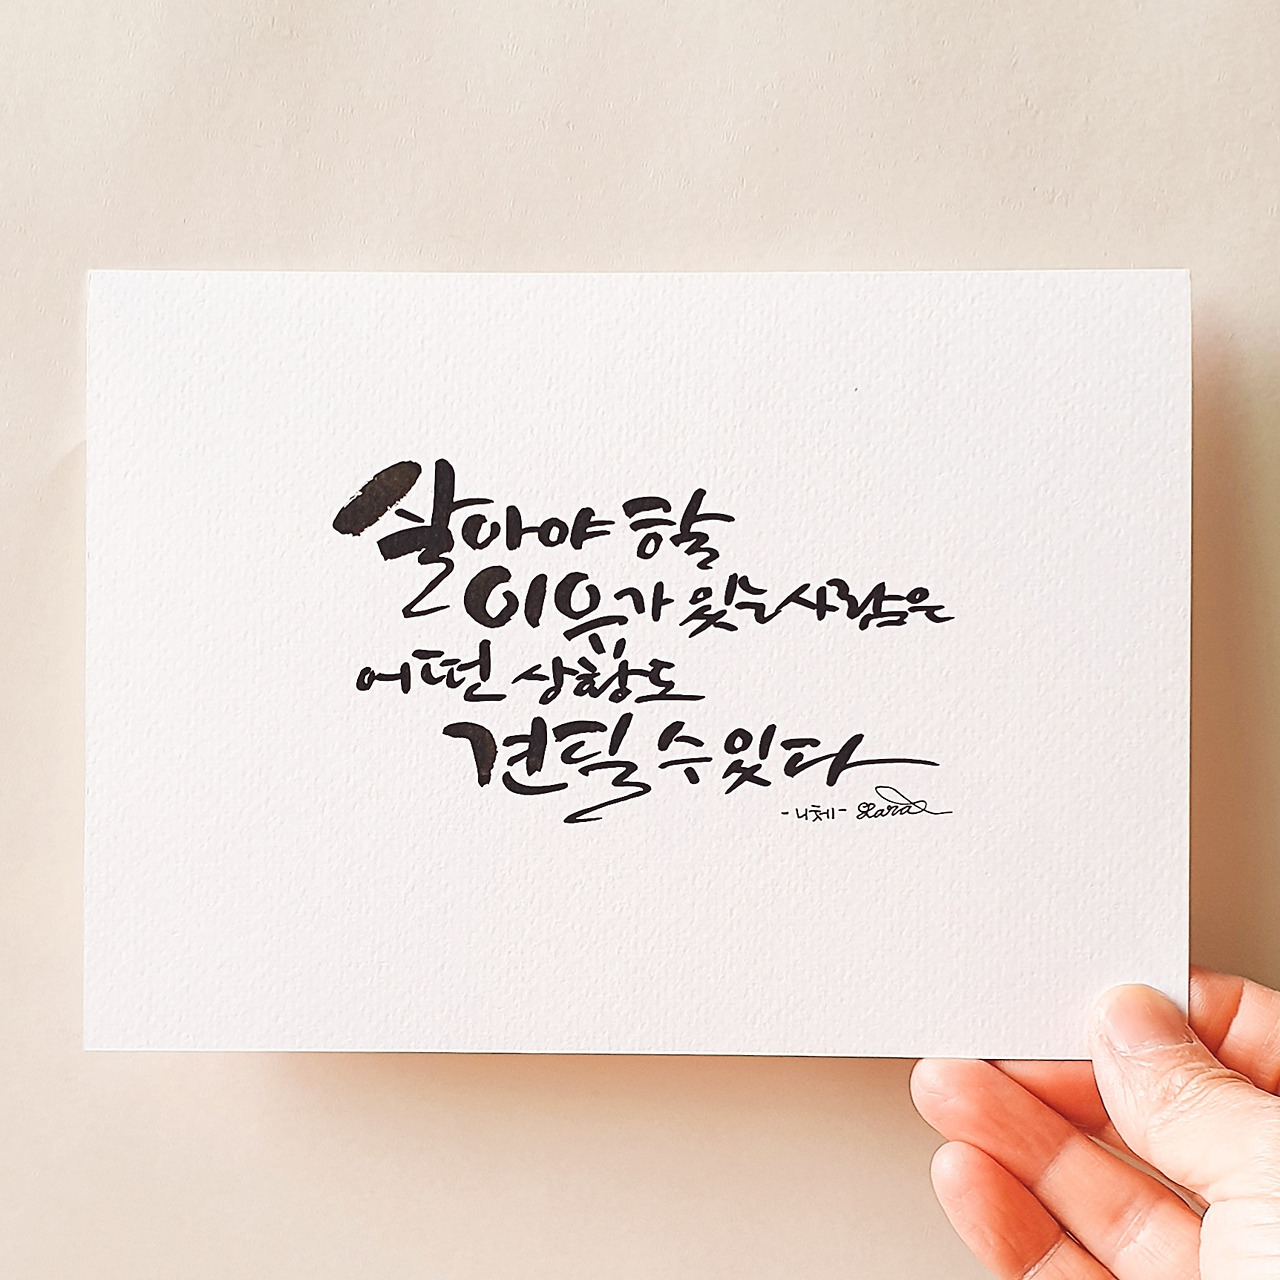 살아야 할
이유가 있는 사람은
어떤 상황도
견딜 수 있다
-니체- Sara